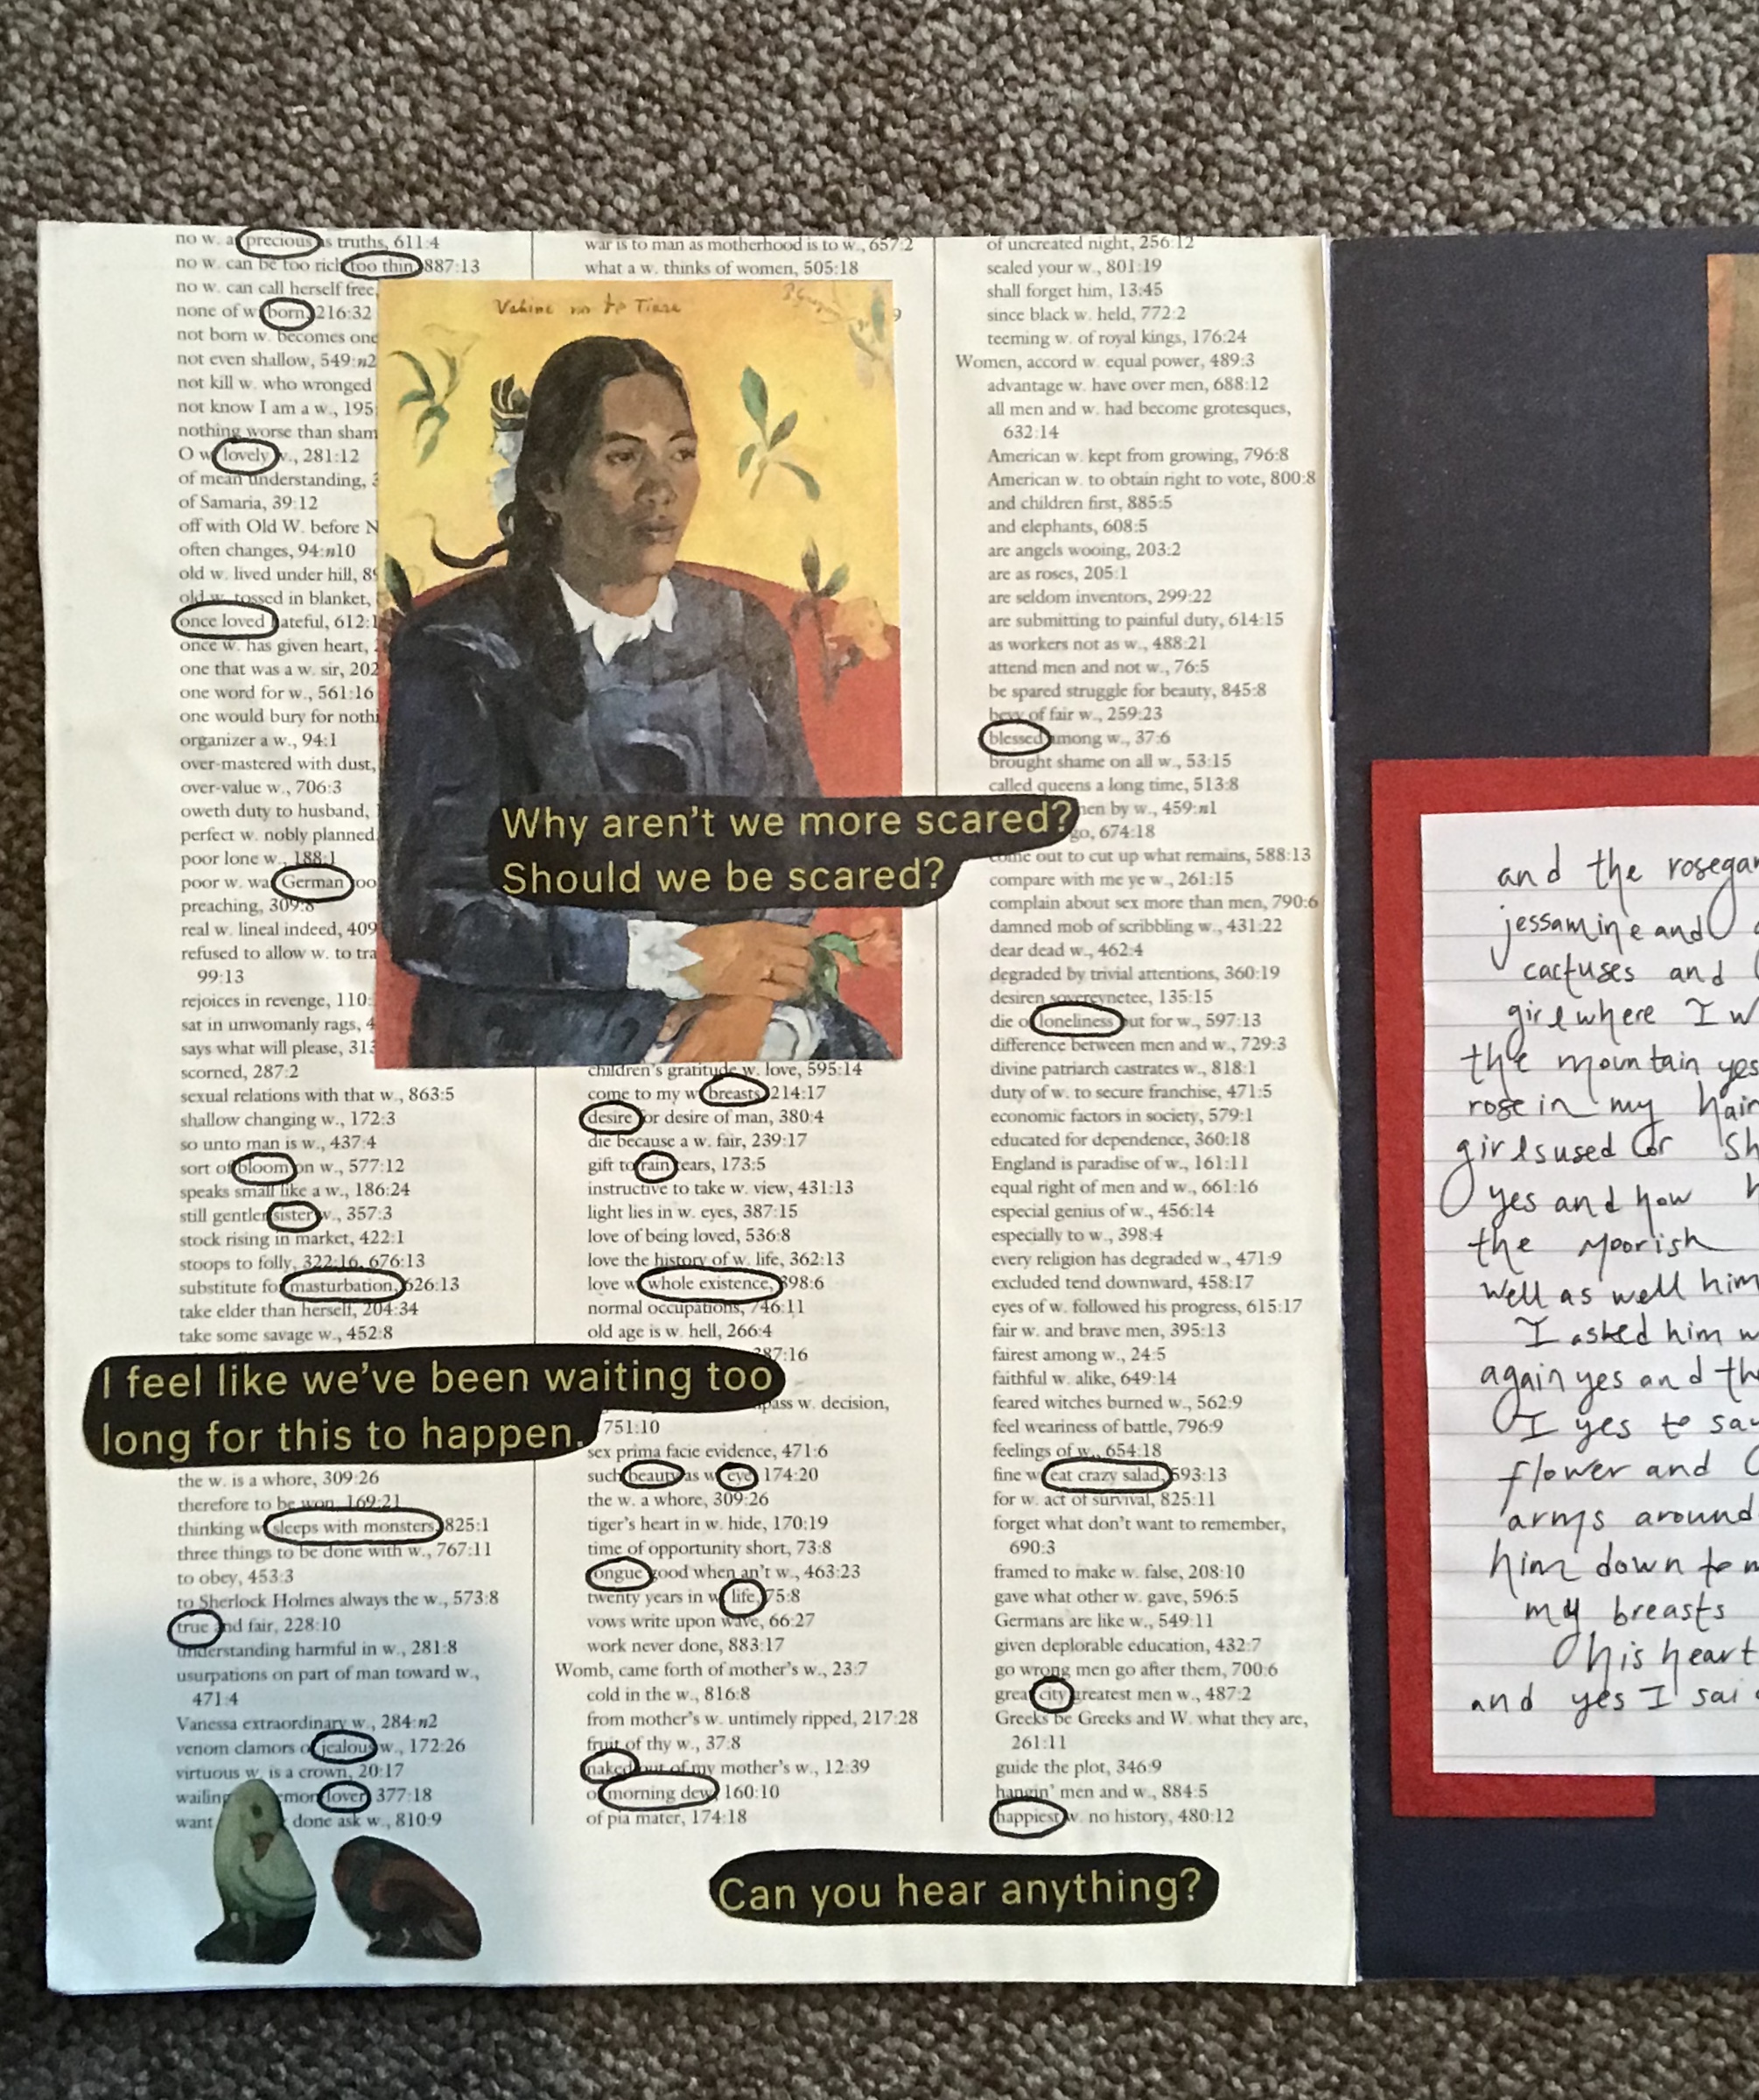 no w. a precious as truths, 611:4
no w. can be too rich too thin, 887:13
no w. can call herself free,
none of w. born, 216:32
not born w. becomes one
not even shallow, 549:n2
not kill w. who wronged
not know I am a w., 195
nothing worse than sham
O w. lovely w., 281:12
of mean understanding,
of Samaria, 39:12
off with Old W. before N
often changes, 94:n10
old w. lived under hill, 8
old w. tossed in blanket,
once loved hateful, 612:1
once w. has given heart,
one that was a w. sir, 202
one word for w., 561:16
one would bury for nothi
organizer a w., 94:1
over-mastered with dust,
over-value w., 706:3
oweth duty to husband,
perfect w. nobly planned
poor lone w., 188:1
poor w. wa German oo
preaching, 309:8
real w. lineal indeed, 409
refused to allow w. to tra
99:13
rejoices in revenge, 110:
sat in unwomanly rags, 4
says what will please, 313
scorned, 287:2
sexual relations with that w., 863:5
shallow changing w., 172:3
so unto man is w., 437:4
sort of bloom on w., 577:12
speaks small like a w., 186:24
still gentler sister w., 357:3
stock rising in market, 422:1
stoops to folly, 322:16, 676:13
substitute for masturbation, 626:13
take elder than herself, 204:34
take some savage w., 452:8
I feel like we've been waiting too
long for this to happen.
the w. is a whore, 309:26
therefore to be won, 169:21
thinking w. sleeps with monsters, 825:1
three things to be done with w., 767:11
to obey, 453:3
to Sherlock Holmes always the w., 573:8
true and fair, 228:10
understanding harmful in w., 281:8
usurpations on part of man toward w.,
471:4
Vanessa extraordinary w., 284:n2
venom clamors of jealous w., 172:26
virtuous w. is a crown, 20:17
wailing emon lover, 377:18
want done ask w., 810:9
war is to man as motherhood is to w., 657:2
what a w. thinks of women, 505:18
9
Vahine no te Tiare
Why aren't we more scared?
Should we be scared?
children's gratitude w. love, 595:14
come to my w. breasts, 214:17
desire for desire of man, 380:4
die because a w. fair, 239:17
gift to rain tears, 173:5
instructive to take w. view, 431:13
light lies in w. eyes, 387:15
love of being loved, 536:8
love the history of w. life, 362:13
love w. whole existence, 398:6
normal occupations, 746:11
old age is w. hell, 266:4
387:16
pass w. decision,
751:10
sex prima facie evidence, 471:6
such beauty as w. eye, 174:20
the w. a whore, 309:26
tiger's heart in w. hide, 170:19
time of opportunity short, 73:8
tongue good when an't w., 463:23
twenty years in w. life, 75:8
vows write upon wave, 66:27
work never done, 883:17
Womb, came forth of mother's w., 23:7
cold in the w., 816:8
from mother's w. untimely ripped, 217:28
fruit of thy w., 37:8
naked out of my mother's w., 12:39
of morning dew, 160:10
of pia mater, 174:18
of uncreated night, 256:12
sealed your w., 801:19
shall forget him, 13:45
since black w. held, 772:2
teeming w. of royal kings, 176:24
Women, accord w. equal power, 489:3
advantage w. have over men, 688:12
all men and w. had become grotesques,
632:14
American w. kept from growing, 796:8
American w. to obtain right to vote, 800:8
and children first, 885:5
and elephants, 608:5
are angels wooing, 203:2
are as roses, 205:1
are seldom inventors, 299:22
are submitting to painful duty, 614:15
as workers not as w., 488:21
attend men and not w., 76:5
be spared struggle for beauty, 845:8
bevy of fair w., 259:23
blessed among w., 37:6
brought shame on all w., 53:15
called queens a long time, 513:8
men by w., 459:n1
go, 674:18
come out to cut up what remains, 588:13
compare with me ye w., 261:15
complain about sex more than men, 790:6
damned mob of scribbling w., 431:22
dear dead w., 462:4
degraded by trivial attentions, 360:19
desiren sovereynetee, 135:15
die of loneliness but for w., 597:13
difference between men and w., 729:3
divine patriarch castrates w., 818:1
duty of w. to secure franchise, 471:5
economic factors in society, 579:1
educated for dependence, 360:18
England is paradise of w., 161:11
equal right of men and w., 661:16
especial genius of w., 456:14
especially to w., 398:4
every religion has degraded w., 471:9
excluded tend downward, 458:17
eyes of w. followed his progress, 615:17
fair w. and brave men, 395:13
fairest among w., 24:5
faithful w. alike, 649:14
feared witches burned w., 562:9
feel weariness of battle, 796:9
feelings of w., 654:18
fine w. eat crazy salad, 593:13
for w. act of survival, 825:11
forget what don't want to remember,
690:3
framed to make w. false, 208:10
gave what other w. gave, 596:5
Germans are like w., 549:11
given deplorable education, 432:7
go wrong men go after them, 700:6
great city greatest men w., 487:2
Greeks be Greeks and W. what they are,
261:11
guide the plot, 346:9
hangin' men and w., 884:5
happiest w. no history, 480:12
Can you hear anything?
and the rosegar
jessamine and
cactuses and
girl where I w
the mountain yes
rose in my hair
girls used or Sh
yes and how h
the Moorish
well as well him
I asked him w
again yes and the
I yes to say
flower and
arms around
him down to m
my breasts
his heart
and yes I said